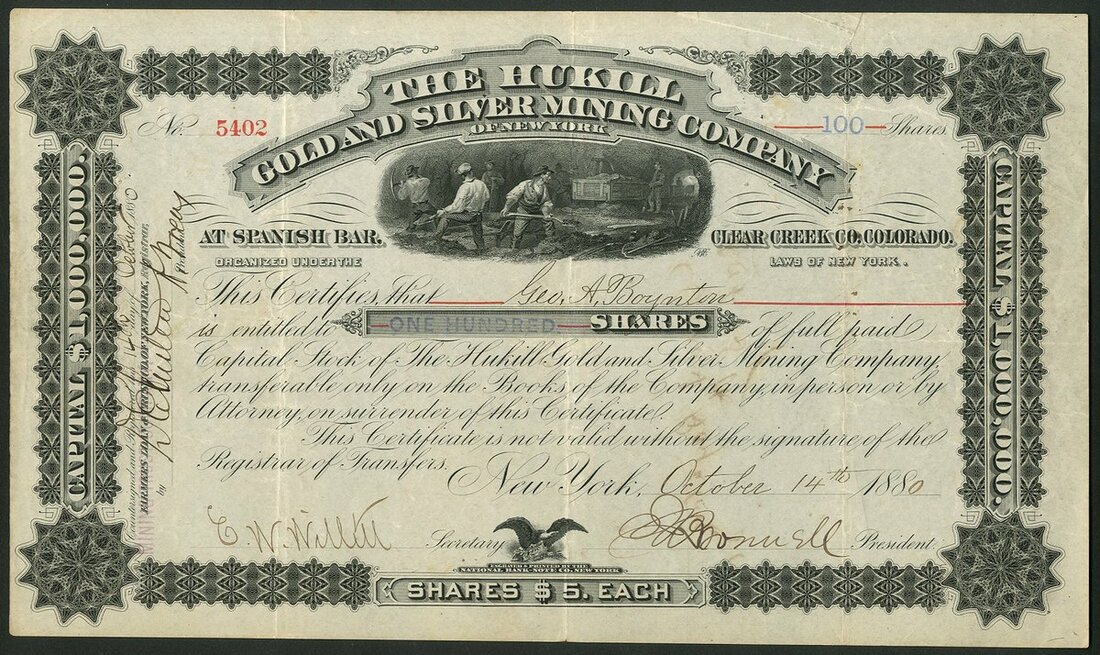 THE HUKILL
GOLD AND SILVER MINING COMPANY
OF NEW YORK
No. 5402
100 Shares
AT SPANISH BAR,
CLEAR CREEK CO. COLORADO.
ORGANIZED UNDER THE
LAWS OF NEW YORK.
This Certifies, that Geo. A. Boynton
is entitled to ONE HUNDRED SHARES of full paid
Capital Stock of The Hukill Gold and Silver Mining Company,
transferable only on the Books of the Company, in person or by
Attorney, on surrender of this Certificate.
This Certificate is not valid without the signature of the
Registrar of Transfers.
New York, October 14th 1880
E. W. Willett Secretary
President
ENGRAVED & PRINTED BY THE
NATIONAL BANK-NOTE CO. NEW YORK
SHARES $5. EACH
CAPITAL $1,000,000.
CAPITAL $1,000,000.
Countersigned and Registered this 14th day of October 1880.
FARMERS LOAN & TRUST CO. OF NEW YORK, Registrar,
by President